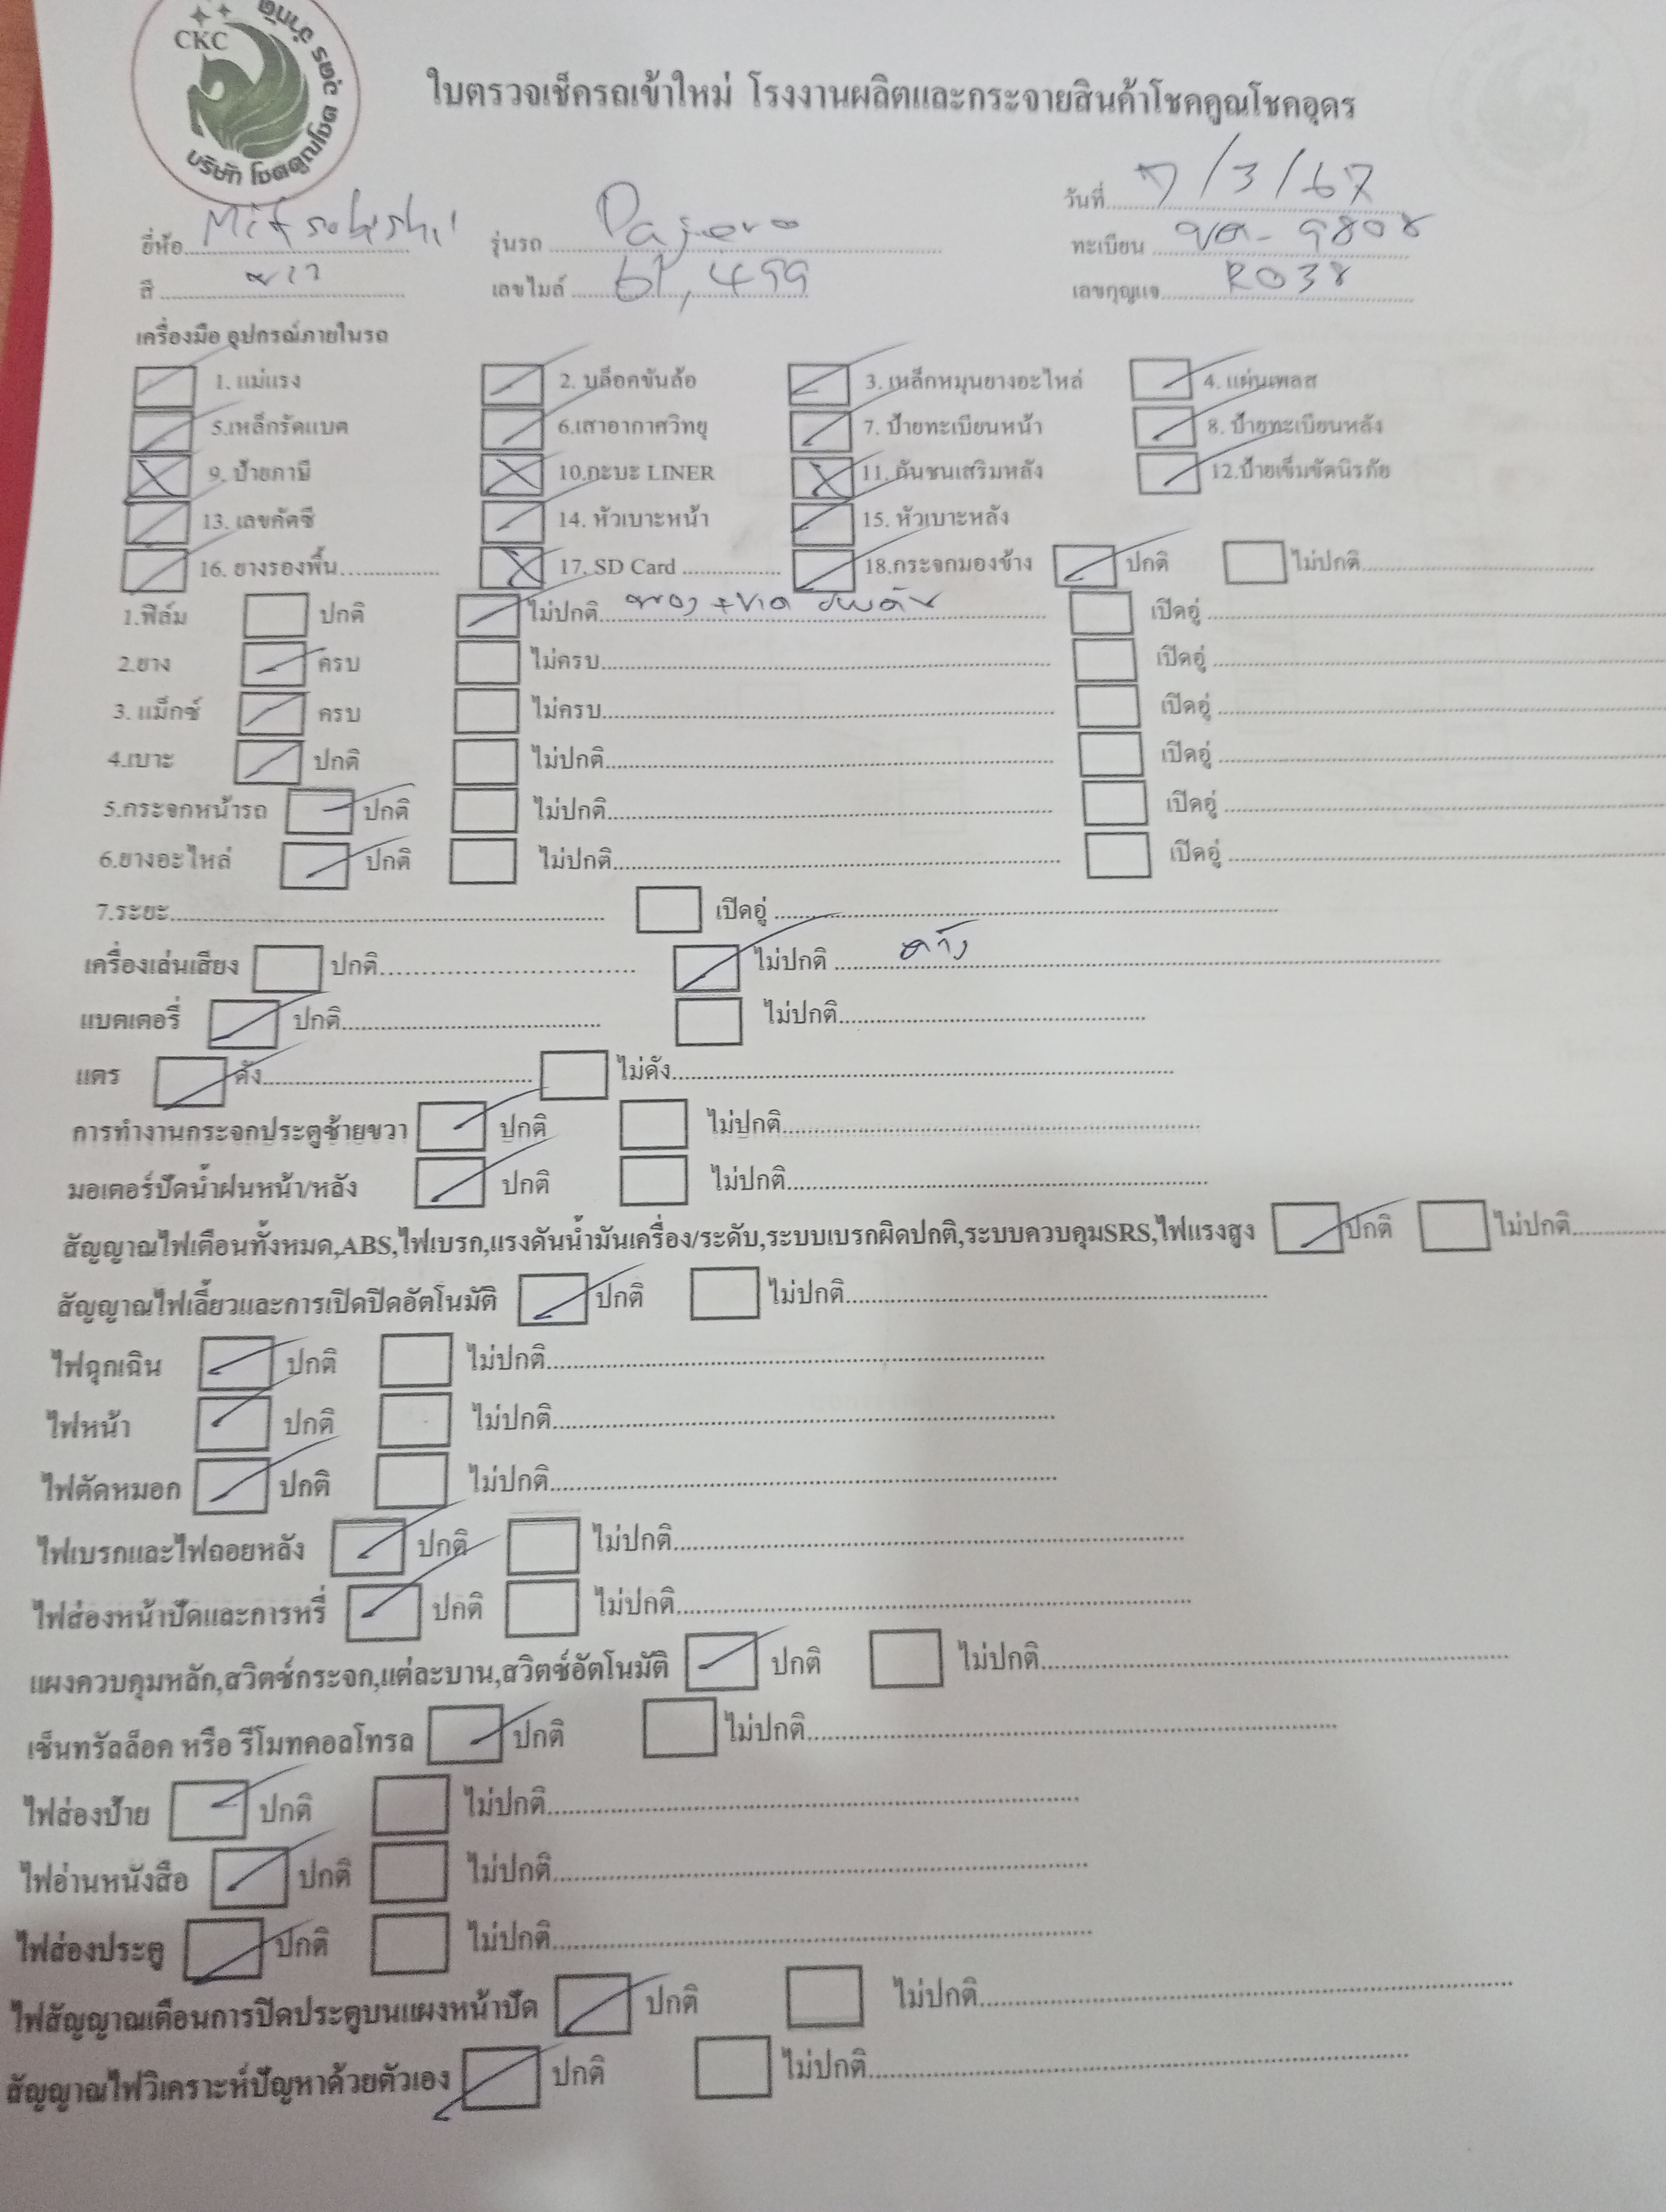 CKC
บริษัท โชคคูณโชคอุดร จำกัด
ใบตรวจเช็ครถเข้าใหม่ โรงงานผลิตและกระจายสินค้าโชคคูณโชคอุดร
วันที่ 7/3/67
ยี่ห้อ Mitsubishi รุ่นรถ Pajero ทะเบียน 9808
สี ขาว เลขไมล์ 61,499 เลขกุญแจ R038
เครื่องมือ อุปกรณ์ภายในรถ
1. แม่แรง 2. บล็อคขันล้อ 3. เหล็กหมุนยางอะไหล่ 4. แผ่นเพลส
5.เหล็กรัดแบต 6.เสาอากาศวิทยุ 7. ป้ายทะเบียนหน้า 8. ป้ายทะเบียนหลัง
9. ป้ายภาษี 10.กะบะ LINER 11. กันชนเสริมหลัง 12.ป้ายเข็มขัดนิรภัย
13. เลขคัตซี 14. หัวเบาะหน้า 15. หัวเบาะหลัง
16. ยางรองพื้น 17. SD Card 18.กระจกมองข้าง ปกติ ไม่ปกติ
1.ฟิล์ม ปกติ ไม่ปกติ เปิดอู่
2.ยาง ครบ ไม่ครบ เปิดอู่
3. แม็กซ์ ครบ ไม่ครบ เปิดอู่
4.เบาะ ปกติ ไม่ปกติ เปิดอู่
5.กระจกหน้ารถ ปกติ ไม่ปกติ เปิดอู่
6.ยางอะไหล่ ปกติ ไม่ปกติ เปิดอู่
7.ระยะ เปิดอู่
เครื่องเล่นเสียง ปกติ ไม่ปกติ ค้าง
แบตเตอรี่ ปกติ ไม่ปกติ
แตร ดัง ไม่ดัง
การทำงานกระจกประตูซ้ายขวา ปกติ ไม่ปกติ
มอเตอร์ปัดน้ำฝนหน้า/หลัง ปกติ ไม่ปกติ
สัญญาณไฟเตือนทั้งหมด,ABS,ไฟเบรก,แรงดันน้ำมันเครื่อง/ระดับ,ระบบเบรกผิดปกติ,ระบบควบคุมSRS,ไฟแรงสูง ปกติ ไม่ปกติ
สัญญาณไฟเลี้ยวและการเปิดปิดอัตโนมัติ ปกติ ไม่ปกติ
ไฟฉุกเฉิน ปกติ ไม่ปกติ
ไฟหน้า ปกติ ไม่ปกติ
ไฟตัดหมอก ปกติ ไม่ปกติ
ไฟเบรกและไฟถอยหลัง ปกติ ไม่ปกติ
ไฟส่องหน้าปัดและการหรี่ ปกติ ไม่ปกติ
แผงควบคุมหลัก,สวิตช์กระจก,แต่ละบาน,สวิตช์อัตโนมัติ ปกติ ไม่ปกติ
เซ็นทรัลล็อค หรือ รีโมทคอลโทรล ปกติ ไม่ปกติ
ไฟส่องป้าย ปกติ ไม่ปกติ
ไฟอ่านหนังสือ ปกติ ไม่ปกติ
ไฟส่องประตู ปกติ ไม่ปกติ
ไฟสัญญาณเตือนการปิดประตูบนแผงหน้าปัด ปกติ ไม่ปกติ
สัญญาณไฟวิเคราะห์ปัญหาด้วยตัวเอง ปกติ ไม่ปกติ